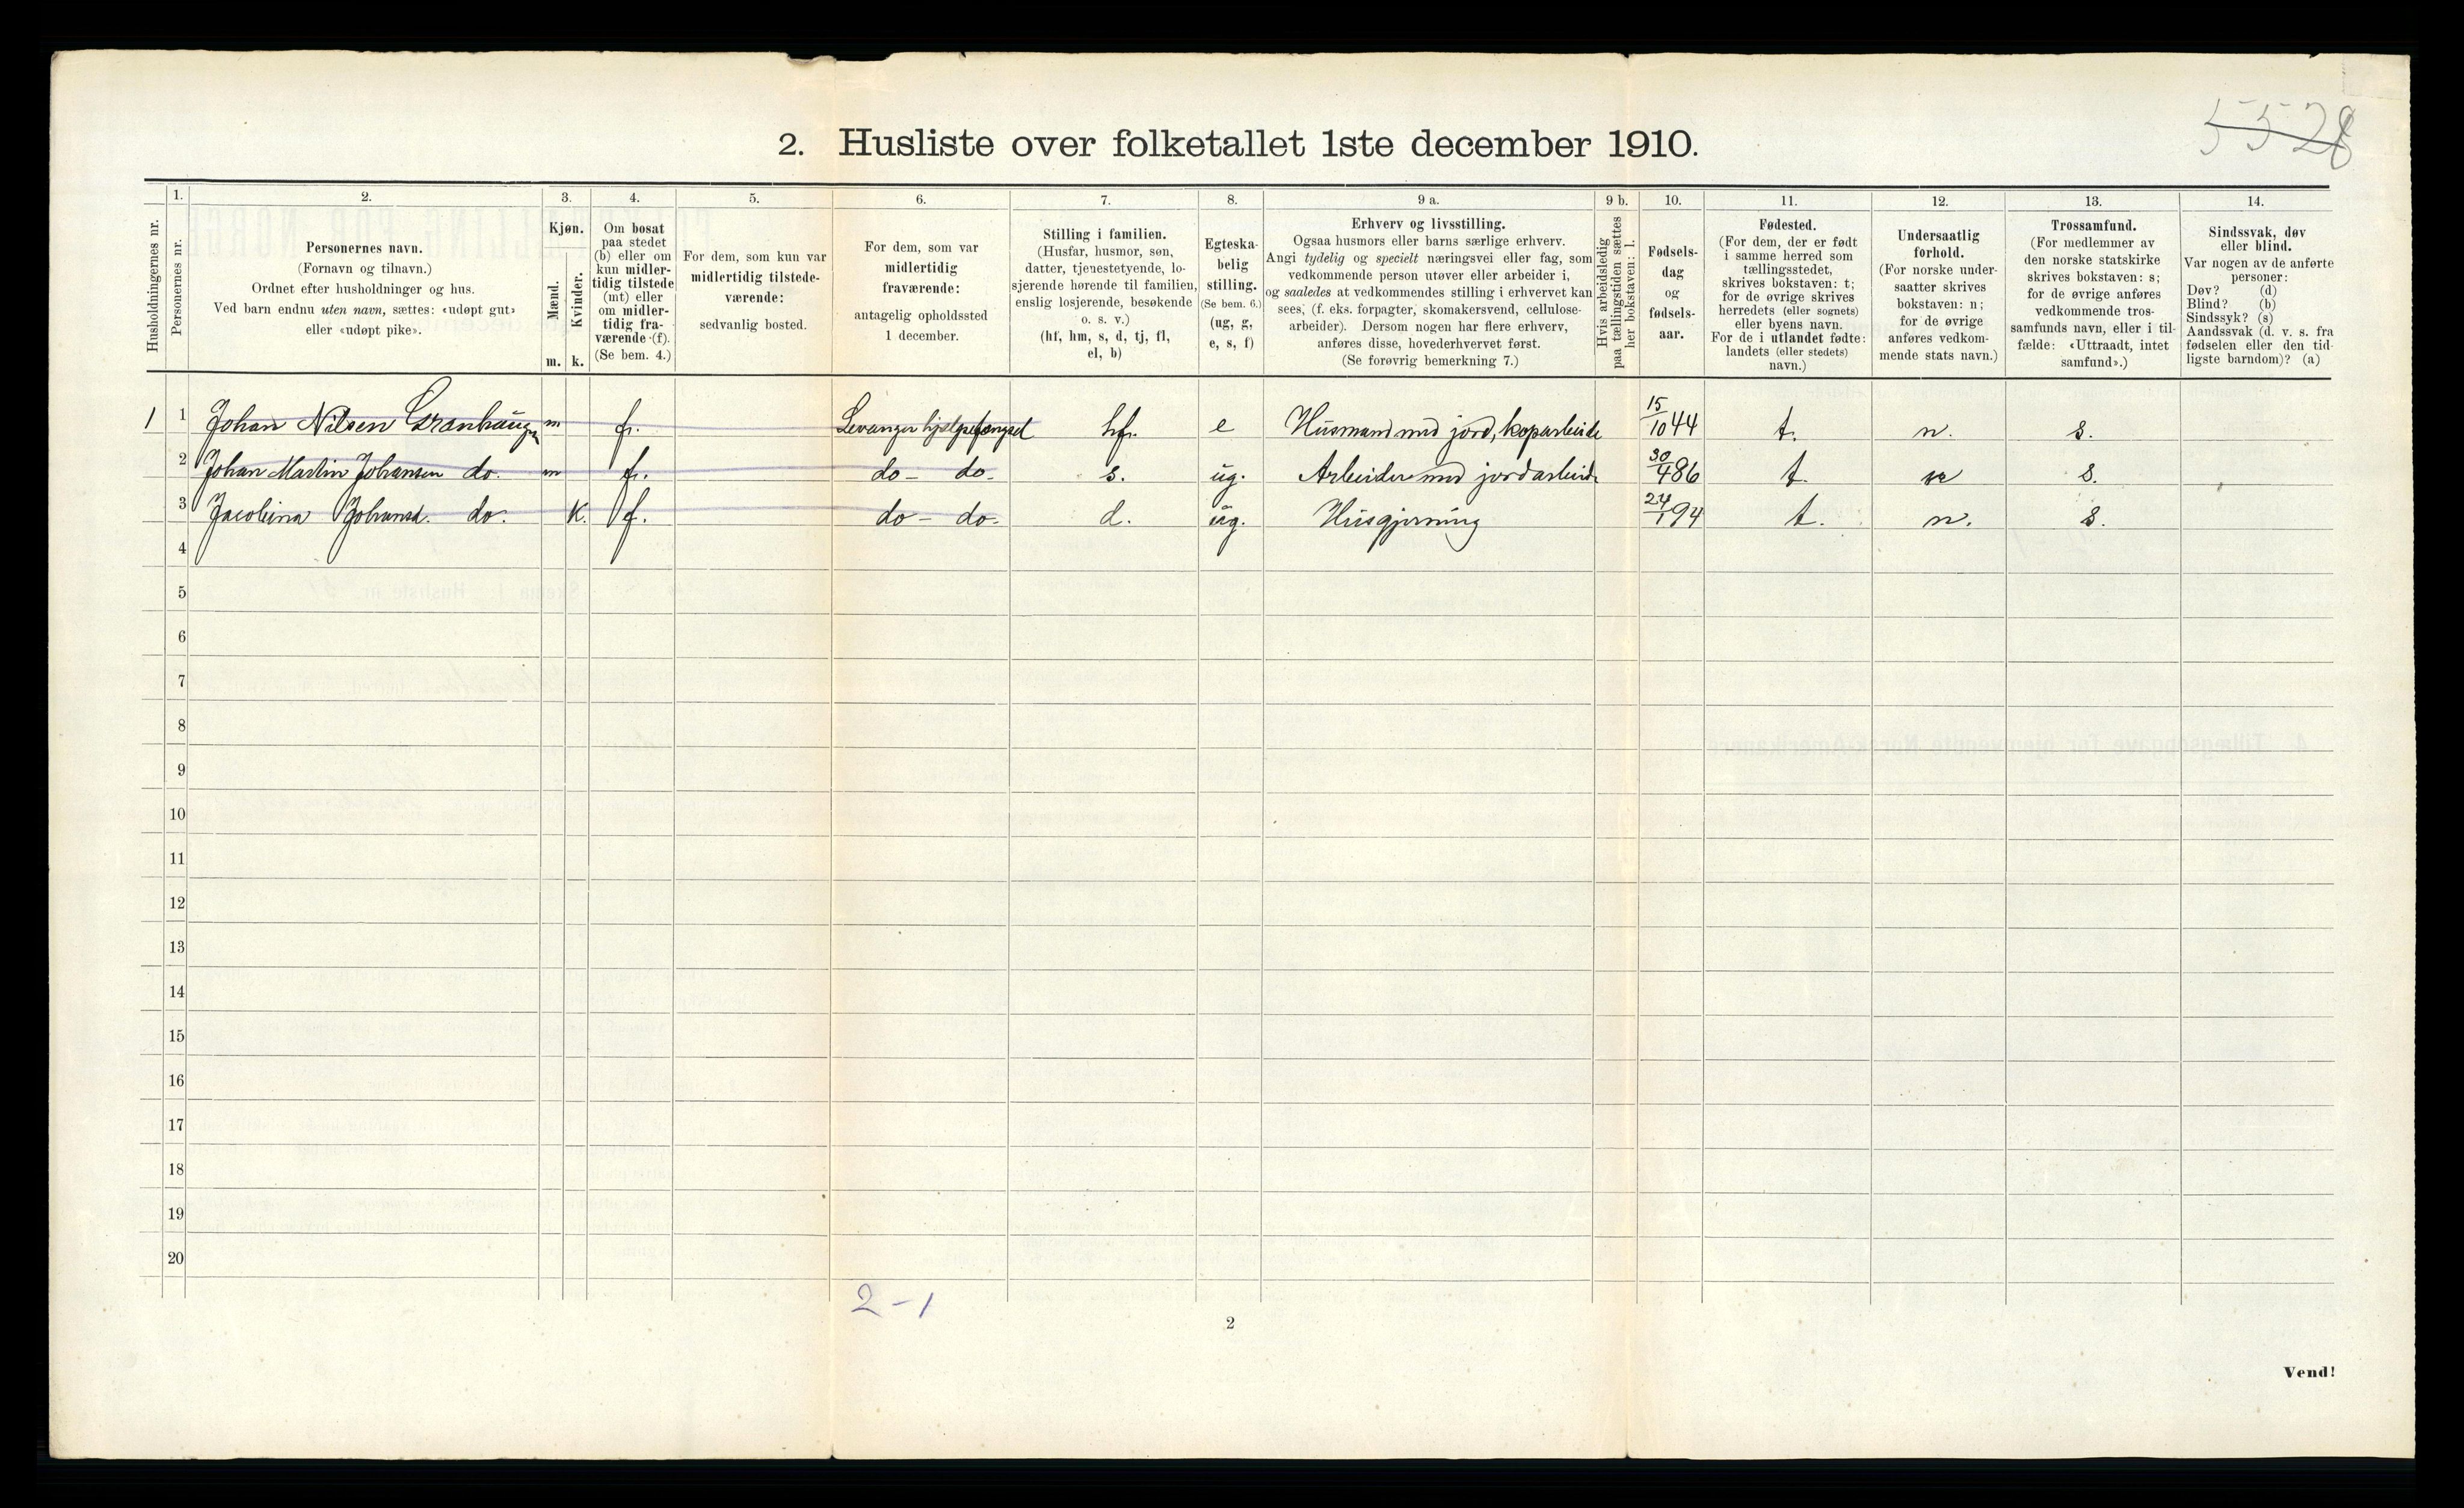 5528
2. Husliste over folketallet 1ste december 1910.
Husholdningernes nr.
1.
Personernes nr.
2.
Personernes navn.
(Fornavn og tilnavn.)
Ordnet efter husholdninger og hus.
Ved barn endnu uten navn, sættes: «udøpt gut»
eller «udøpt pike».
3.
Kjøn.
Mænd.
Kvinder.
m. k.
4.
Om bosat
paa stedet
(b) eller om
kun midler-
tidig tilstede
(mt) eller
om midler-
tidig fra-
værende (f).
(Se bem. 4.)
5.
For dem, som kun var
midlertidig tilstede-
værende:
sedvanlig bosted.
6.
For dem, som var
midlertidig
fraværende:
antagelig opholdssted
1 december.
7.
Stilling i familien.
(Husfar, husmor, søn,
datter, tjenestetyende, lo-
sjerende hørende til familien,
enslig losjerende, besøkende
o. s. v.)
(hf, hm, s, d, tj, fl,
el, b)
8.
Egteska-
belig
stilling.
(Se bem. 6.)
(ug, g,
e, s, f)
9 a.
Erhverv og livsstilling.
Ogsaa husmors eller barns særlige erhverv.
Angi tydelig og specielt næringsvei eller fag, som
vedkommende person utøver eller arbeider i,
og saaledes at vedkommendes stilling i erhvervet kan
sees, (f. eks. forpagter, skomakersvend, cellulose-
arbeider). Dersom nogen har flere erhverv,
anføres disse, hovederhvervet først.
(Se forøvrig bemerkning 7.)
9 b.
Hvis arbeidsledig
paa tællingstiden sættes
her bokstaven: l.
10.
Fødsels-
dag
og
fødsels-
aar.
11.
Fødested.
(For dem, der er født
i samme herred som
tællingsstedet,
skrives bokstaven: t;
for de øvrige skrives
herredets (eller sognets)
eller byens navn.
For de i utlandet fødte:
landets (eller stedets)
navn.)
12.
Undersaatlig
forhold.
(For norske under-
saatter skrives
bokstaven: n;
for de øvrige
anføres vedkom-
mende stats navn.)
13.
Trossamfund.
(For medlemmer av
den norske statskirke
skrives bokstaven: s;
for de øvrige anføres
vedkommende tros-
samfunds navn, eller i til-
fælde: «Uttraadt, intet
samfund».)
14.
Sindssvak, døv
eller blind.
Var nogen av de anførte
personer:
Døv? (d)
Blind? (b)
Sindssyk? (s)
Aandssvak (d. v. s. fra
fødselen eller den tid-
ligste barndom)? (a)
1 1 Johan Nilsen Granhaugen m f. Levanger hjelpefengsel hf. e Husmand med jord, koparbeide 15/10 44 t. n. s.
2 Johan Martin Johansen do. m f. do - do - s. ug. Arbeider med jordarbeide 30/4 86 t. n s.
3 Jacobina Johansd. do. K. f. do - do. d. ug. Husgjerning 24/1 94 t. n. s.
4
5
6
7
8
9
10
11
12
13
14
15
16
17
18
19
20
2 - 1
2
Vend!